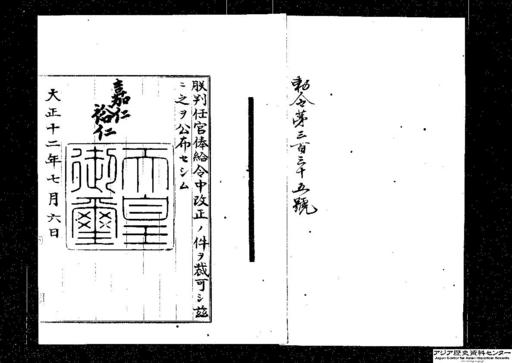 勅令第三百三十五號
朕判任官俸給令中改正ノ件ヲ裁可シ茲
ニ之ヲ公布セシム
嘉仁
裕仁
天皇
御璽
大正十二年七月六日
アジア歴史資料センター
Japan Center for Asian Historical Records